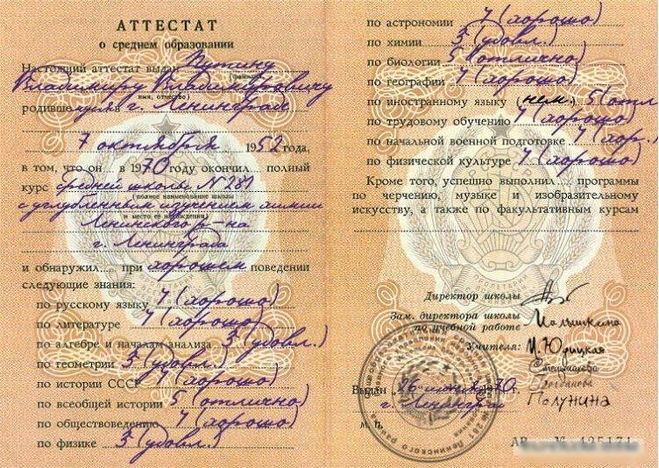 АТТЕСТАТ
о среднем образовании
Настоящий аттестат выдан Путину
Владимиру Владимировичу
имя, отчество)
родившемуся в г. Ленинграде
7 октября 1952 года,
в том, что он ... в 1970 году окончил ... полный
курс средней школы № 281
(полное наименование школы
с углубленным изучением химии
и место ее нахождения)
Ленинского р-на
г. Ленинграда
и обнаружил.... при хорошем поведении
следующие знания:
по русскому языку 4 (хорошо)
по литературе 4 (хорошо)
по алгебре и началам анализа 3 (удовл.)
по геометрии 3 (удовл.)
по истории СССР 4 (хорошо)
по всеобщей истории 5 (отлично)
по обществоведению 4 (хорошо)
по физике 3 (удовл.)
по астрономии 4 (хорошо)
по химии 3 (удовл.)
по биологии 5 (отлично)
по географии 4 (хорошо)
по иностранному языку (нем.) 5 (отл
по трудовому обучению 4 (хорошо)
по начальной военной подготовке 4 (хор.)
по физической культуре 4 (хорошо)
Кроме того, успешно выполнил.... программы
по черчению, музыке и изобразительному
искусству, а также по факультативным курсам
Директор школы
Зам. директора школы
по учебной работе
Учителя: И. Юрицкая
Полунина
Выдан 26 июня 1970 г.
г. Ленинград
М. П.